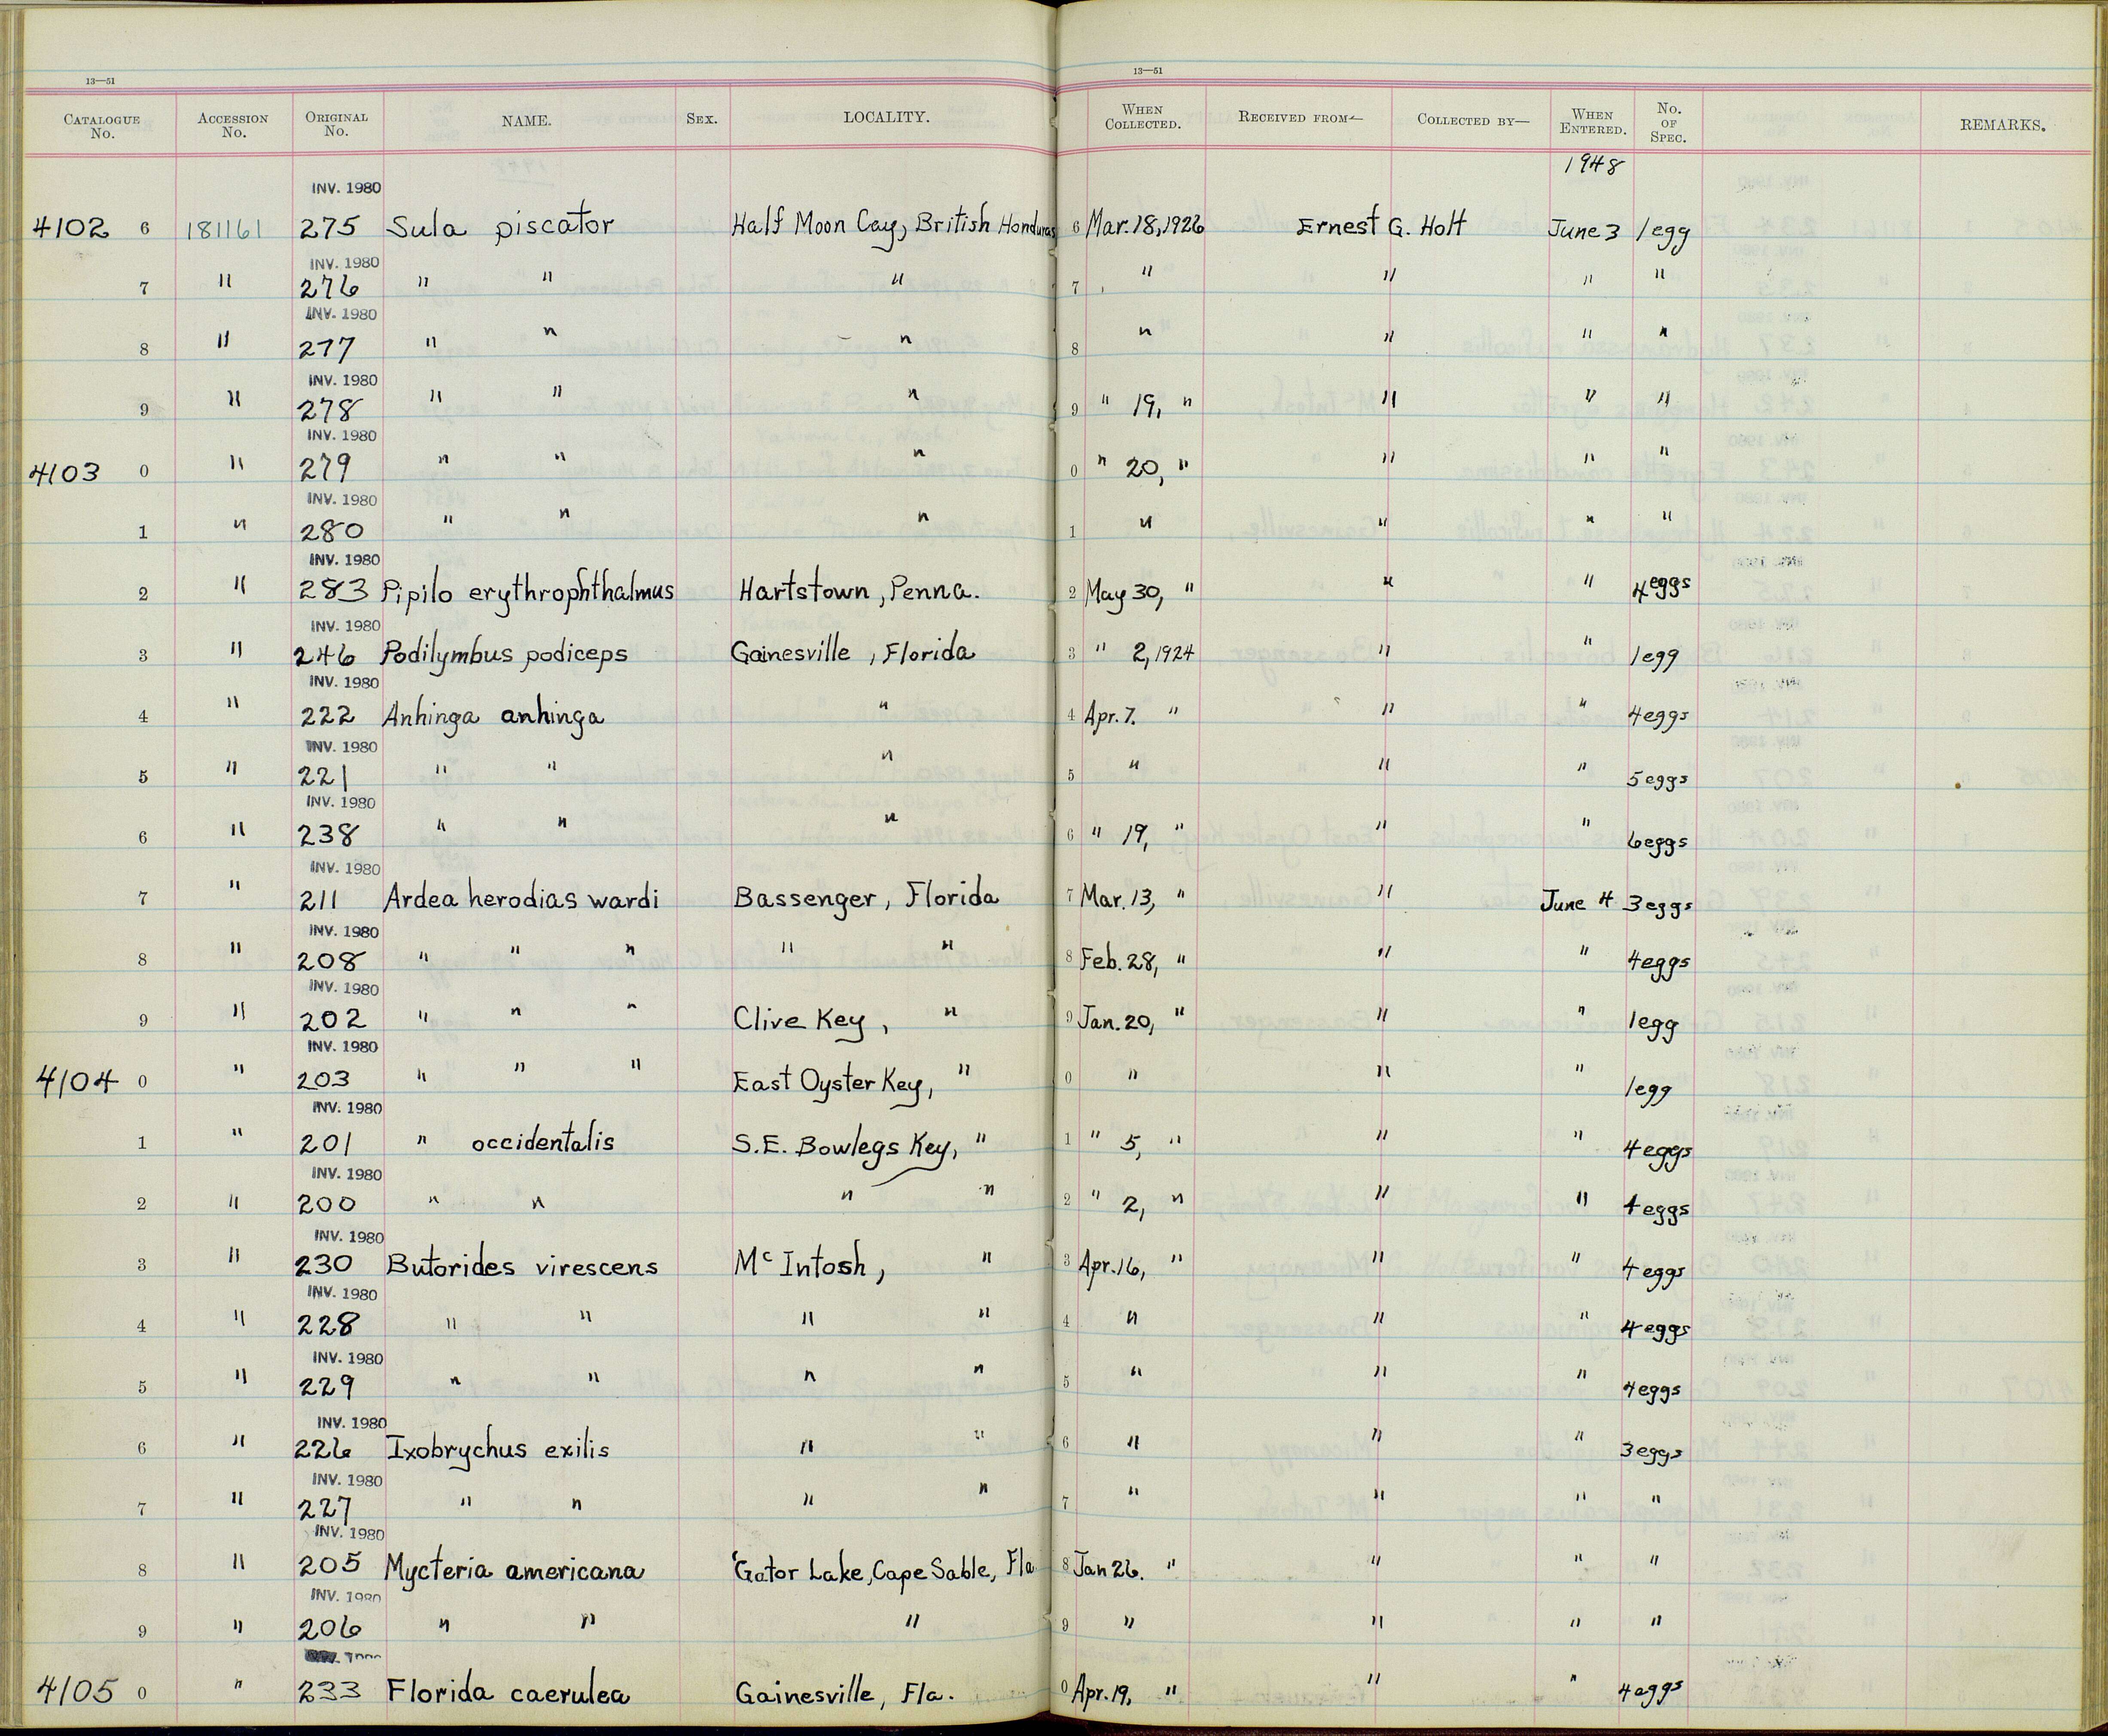 13—51 13—51
CATALOGUE No. ACCESSION No. ORIGINAL No. NAME. SEX. LOCALITY. WHEN COLLECTED. RECEIVED FROM— COLLECTED BY— WHEN ENTERED. No. OF SPEC. REMARKS.
1948
INV. 1980
4102 6 181161 275 Sula piscator Half Moon Cay, British Honduras 6 Mar. 18, 1926 Ernest G. Holt June 3 1 egg
INV. 1980
7 " 276 " " " 7 " " " "
INV. 1980
8 " 277 " " " 8 " " " "
INV. 1980
9 " 278 " " " 9 " 19, " " " "
INV. 1980
4103 0 " 279 " " " 0 " 20, " " " "
INV. 1980
1 " 280 " " " 1 " " " "
INV. 1980
2 " 283 Pipilo erythrophthalmus Hartstown, Penna. 2 May 30, " " " 4 eggs
INV. 1980
3 " 246 Podilymbus podiceps Gainesville, Florida 3 " 2, 1924 " " 1 egg
INV. 1980
4 " 222 Anhinga anhinga " 4 Apr. 7. " " " 4 eggs
INV. 1980
5 " 221 " " " 5 " " " 5 eggs
INV. 1980
6 " 238 " " " 6 " 19, " " " 6 eggs
INV. 1980
7 " 211 Ardea herodias wardi Bassenger, Florida 7 Mar. 13, " " June 4 3 eggs
INV. 1980
8 " 208 " " " " " 8 Feb. 28, " " " 4 eggs
INV. 1980
9 " 202 " " " Clive Key, " 9 Jan. 20, " " " 1 egg
INV. 1980
4104 0 " 203 " " " East Oyster Key, " 0 " " " 1 egg
INV. 1980
1 " 201 " occidentalis S.E. Bowlegs Key, " 1 " 5, " " " 4 eggs
INV. 1980
2 " 200 " " " " 2 " 2, " " " 4 eggs
INV. 1980
3 " 230 Butorides virescens McIntosh, " 3 Apr. 16, " " " 4 eggs
INV. 1980
4 " 228 " " " " 4 " " " 4 eggs
INV. 1980
5 " 229 " " " " 5 " " " 4 eggs
INV. 1980
6 " 226 Ixobrychus exilis " " 6 " " " 3 eggs
INV. 1980
7 " 227 " " " " 7 " " " "
INV. 1980
8 " 205 Mycteria americana 'Gator Lake, Cape Sable, Fla 8 Jan 26. " " " "
INV. 1980
9 " 206 " " " 9 " " " "
4105 0 " 233 Florida caerulea Gainesville, Fla. 0 Apr. 19, " " " 4 eggs